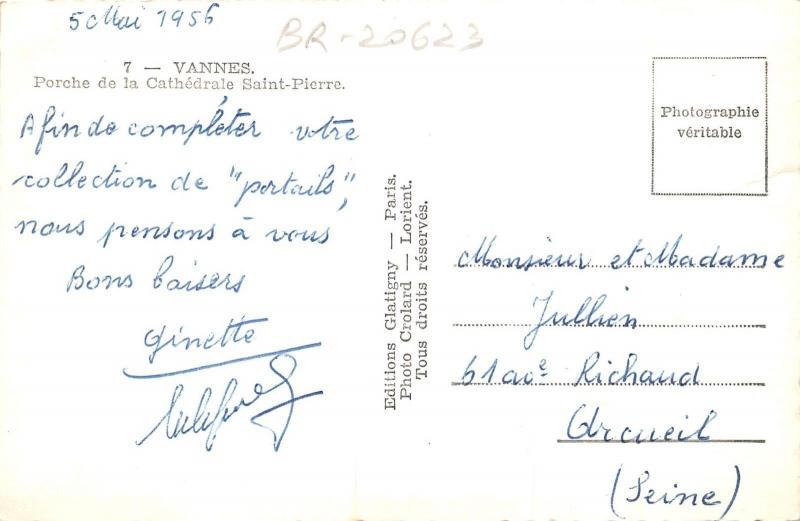 5 Mai 1956
BR-20623
7 — VANNES.
Porche de la Cathédrale Saint-Pierre.
Afin de compléter votre
collection de "portails",
nous pensons à vous
Bons baisers
Ginette
Editions Glatigny — Paris.
Photo Crolard — Lorient.
Tous droits réservés.
Photographie
véritable
Monsieur et Madame
Jullien
61 ave Richaud
Arcueil
(Seine)